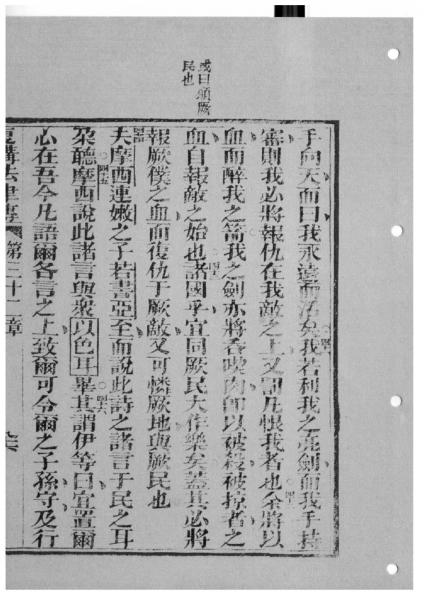 或曰頌厥
民也
手向天而曰我永遠而活矣我若利我之亮劍而我手持
審則我必將報仇在我敵之上又討凡恨我者也余將以
血而醉我之箭我之劍亦將吞噬肉即以被殺被掠者之
血自報敵之始也諸國乎宜同厥民大作樂矣蓋其必將
報厥僕之血而復仇于厥敵又可憐厥地與厥民也
夫摩西連嫩之子若書亞至而說此詩之諸言于民之耳
摩西說此諸言與眾以色耳畢其謂伊等曰宜置爾
心在吾今凡語爾各言之上致爾可令爾之子孫守及行
復講法律傳 第三十二章